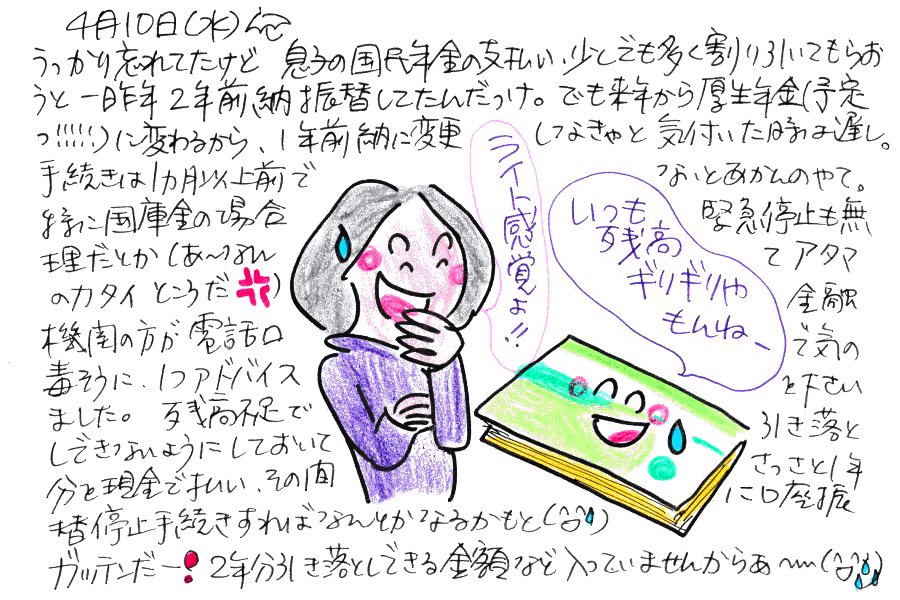 4月10日(水)
うっかり忘れてたけど 息子の国民年金の支払い、少しでも多く割り引いてもらお
うと一昨年2年前納振替してたんだっけ。でも来年から厚生年金(予定
っ!!!!!)に変わるから、1年前納に変更 しなきゃと気付いた時は遅し。
手続きは1カ月以上前で ないとあかんのやて。
特に国庫金の場合 緊急停止も無
理だとか(あ〜なん てアタマ
のカタイところだ) 金融
機関の方が電話口 で気の
毒そうに、1つアドバイス を下さい
ました。残高不足で 引き落と
しできないようにしておいて さっさと1年
分を現金で払い、その間 に口座振
替停止手続きすればなんとかなるかもと(^o^)
ガッテンだー! 2年分引き落としできる金額など入っていませんからあ〜(^o^)
ニート感覚よ!!
いつも
残高
ギリギリや
もんねー